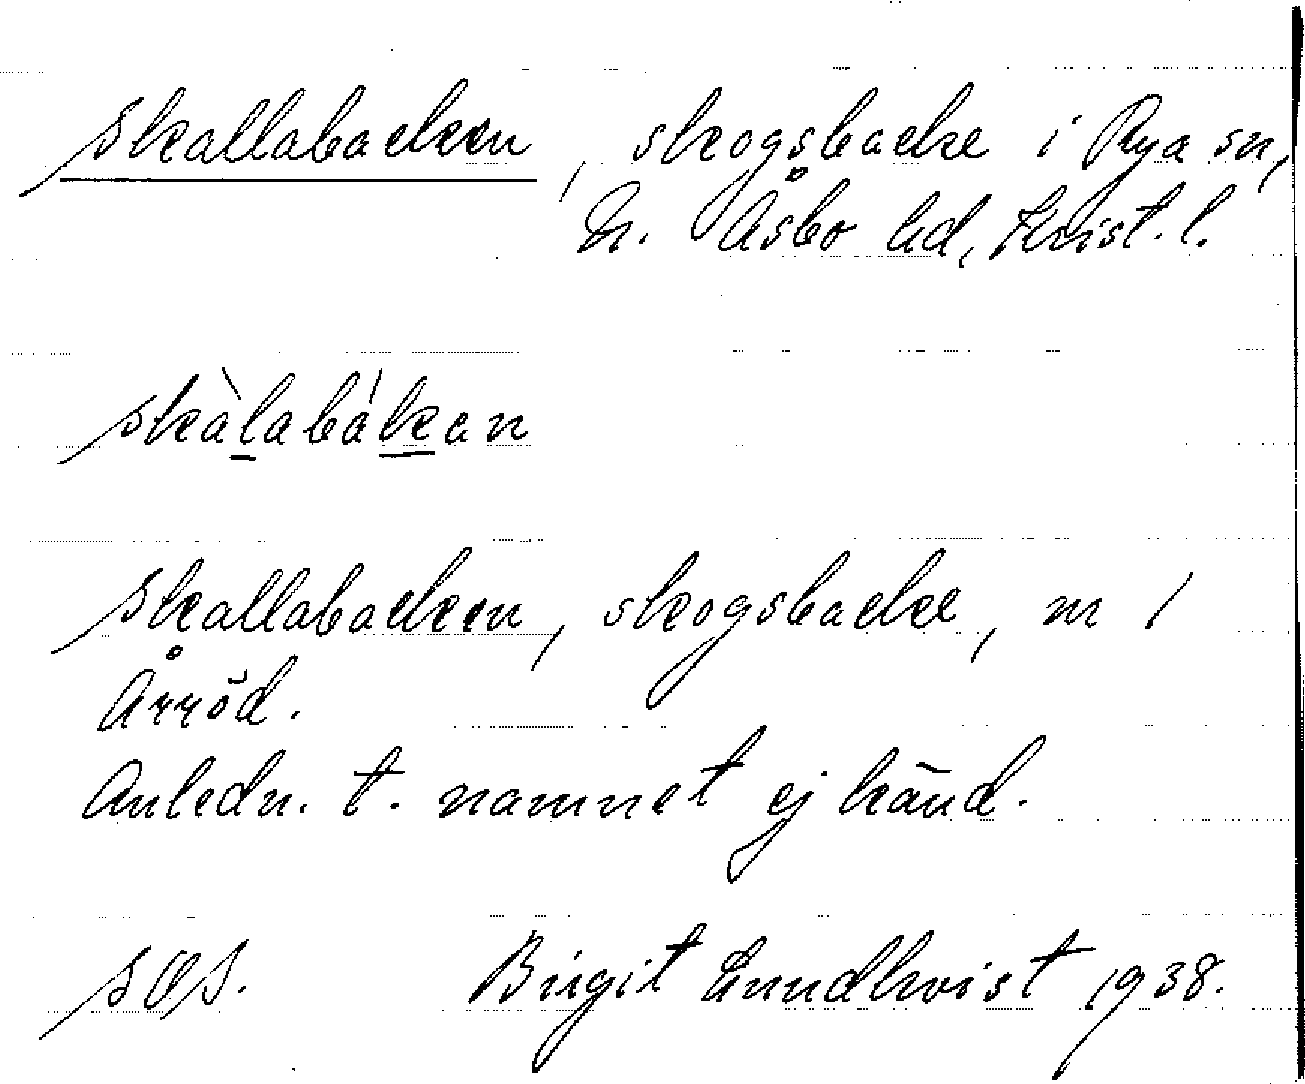 Skallabacken, skogsbacke i Rya sn,
N. Åsbo hd, Krist. l.
skàlabákan
Skallabacken, skogsbacke, m 1
Årröd.
Anledn. t. namnet ej känd.
SOS. Birgit Lundkvist 1938.